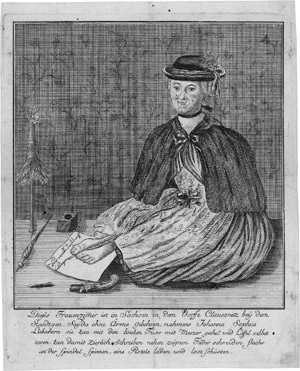 Dieses Frauenzimer ist in Sachsen in dem Dorffe Clausnitz bey dem
Stædtgen Sayda ohne Arme gebohren, nahmens Johanna Sophia
Liebschern sie kan mit den linken Fuss mit Messer gabel und Löfel selbst
essen kan damit zierlich Schreiben nehen zeignen Feder schneiden flachs
an der spindel spinnen, eine Pistole laden und los schiessen.